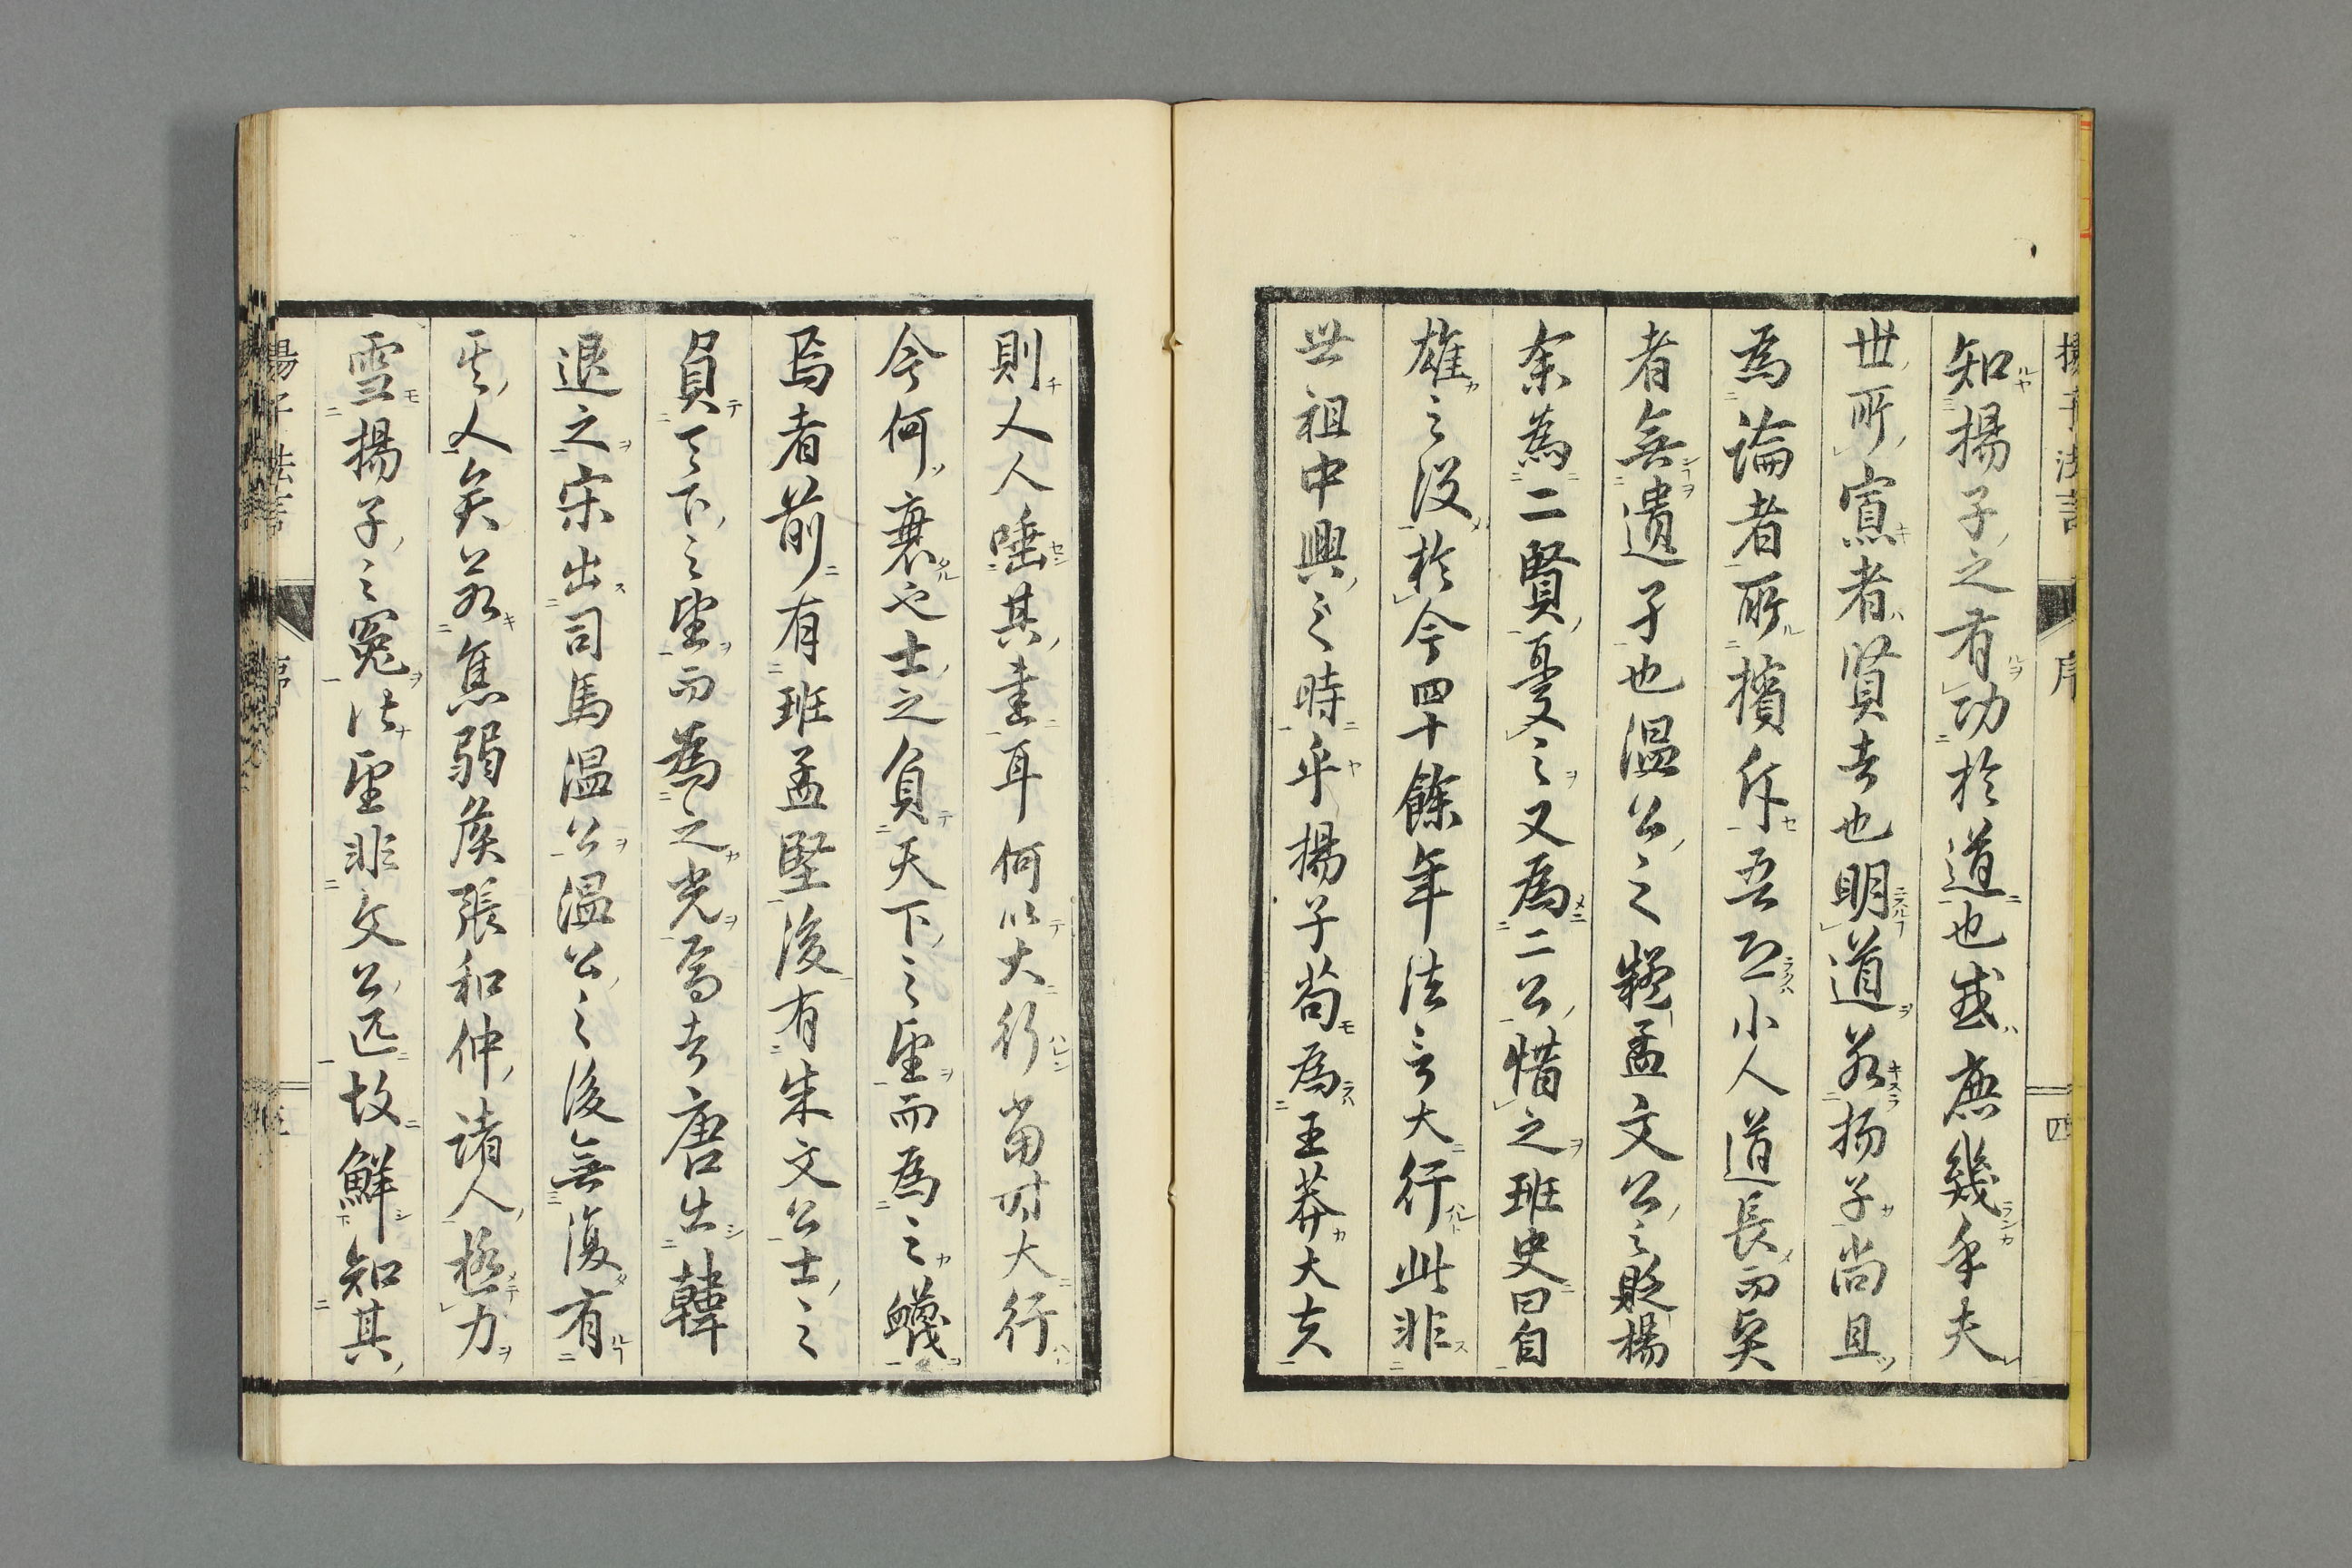 揚子法言 序 四
知揚子之有功於道也或庶幾乎夫
世所賔者賢者也明道若揚子尚且
為論者所擯斥吾恐小人道長而矣
者無遺子也溫公之擬孟文公之貶揚
余為二賢憂之又為二公惜之班史曰自
雄之沒於今四十餘年法言大行此非
世祖中興之時乎揚子苟為王莽大夫
則人人唾其書耳何以大行當時大行
今何衰也士之負天下之望而為之
焉者前有班孟堅後有朱文公士之
負天下之望而為之光焉者唐出韓
退之宋出司馬溫公溫公之後無復有
其人矣若焦弱侯張和仲諸人極力
雪揚子之冤法聖非文公匹故鮮知其
揚子法言 序